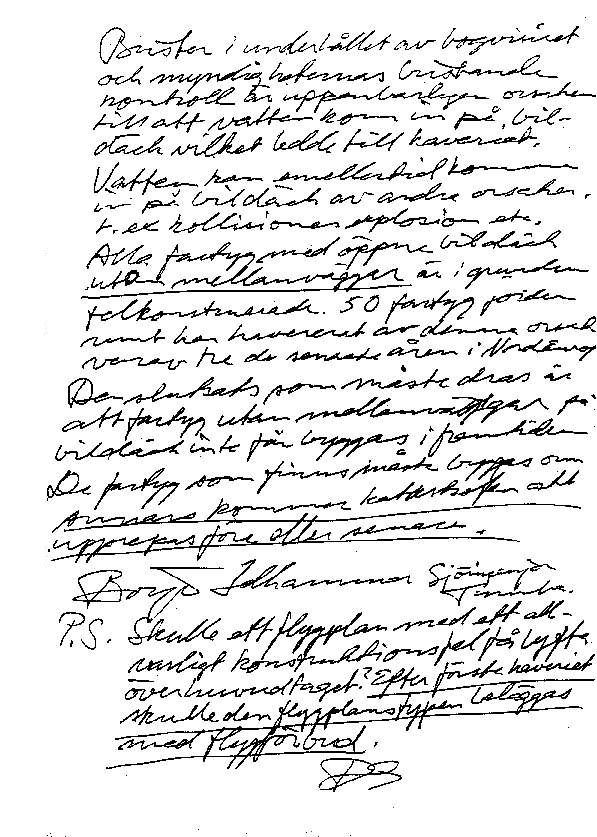 Brister i underhållet av bogvisiret
och myndigheternas bristande
kontroll är uppenbarligen orsaken
till att vatten kom in på bil-
däck vilket ledde till haveriet.
Vatten kan emellertid komma
in på bildäck av andra orsaker.
t. ex kollisioner explosion etc.
Alla fartyg med öppna bildäck
utan mellanväggar är i grunden
felkonstruerade. 50 fartyg jorden
runt har havererat av denna orsak
varav tre de senaste åren i Nordeuropa
Den slutsats som måste dras är
att fartyg utan mellanväggar på
bildäck inte får byggas i framtiden
De fartyg som finns måste byggas om
annars kommer katastrofen att
upprepas före eller senare.
Sjöingenjör
P.S. Skulle ett flygplan med ett all-
varligt konstruktionsfel få lyfta
överhuvudtaget? Efter första haveriet
skulle den flygplanstypen beläggas
med flygförbud.